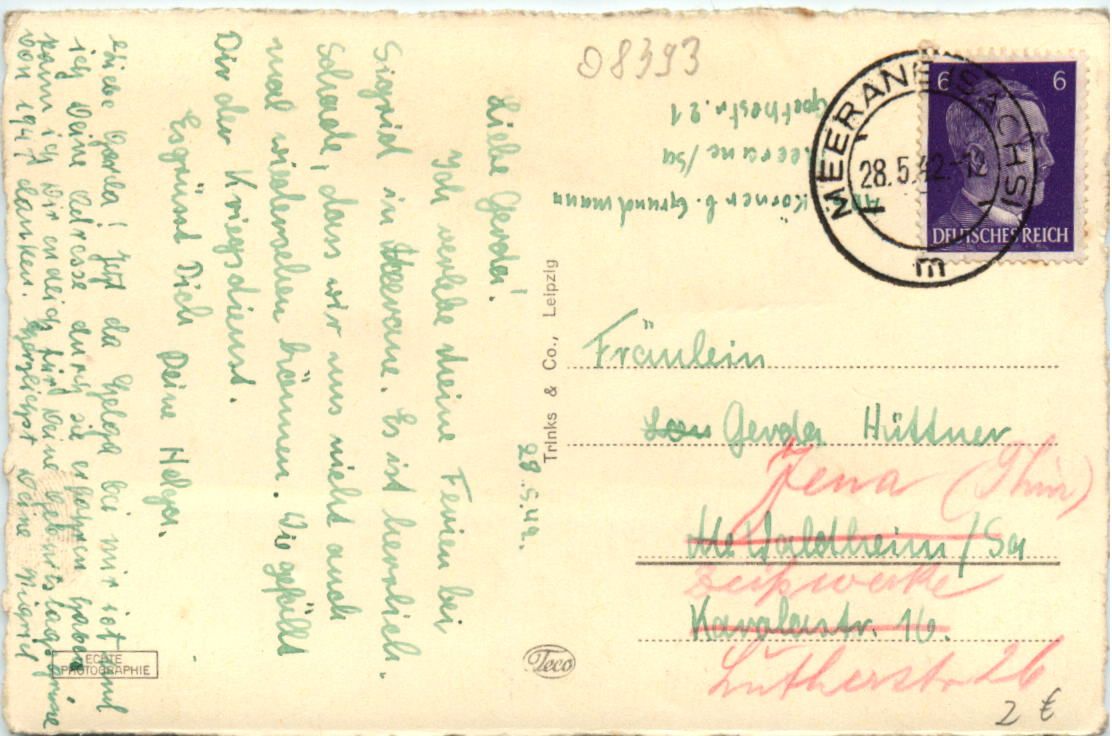 08393
MEERANE (SACHS)
28.5.42.-12
m
6 6
DEUTSCHES REICH
Körner b. Grundmann
Meerane/Sa
Goethestr. 21
28.5.42.
Liebe Gerda!
Ich verlebe meine Ferien bei
Sigrid in Meerane. Es ist herrlich.
Schade, dass wir uns nicht auch
mal wiedersehen können. Wie gefällt
Dir der Kriegsdienst.
Es grüsst Dich Deine Helga.
Liebe Gerda! Jetzt da Helga bei mir ist und
ich Deine Adresse durch sie erfahren habe
kann ich Dir endlich für Deine Geburtstagsgrüsse
von 1941 danken. Herzlichst Deine
Trinks & Co., Leipzig
Fräulein
Gerda Hüttner
Jena (Thür)
Waldheim/Sa
Zeisswerke
Lutherstr 26
ECHTE
PHOTOGRAPHIE
Teco
2 €